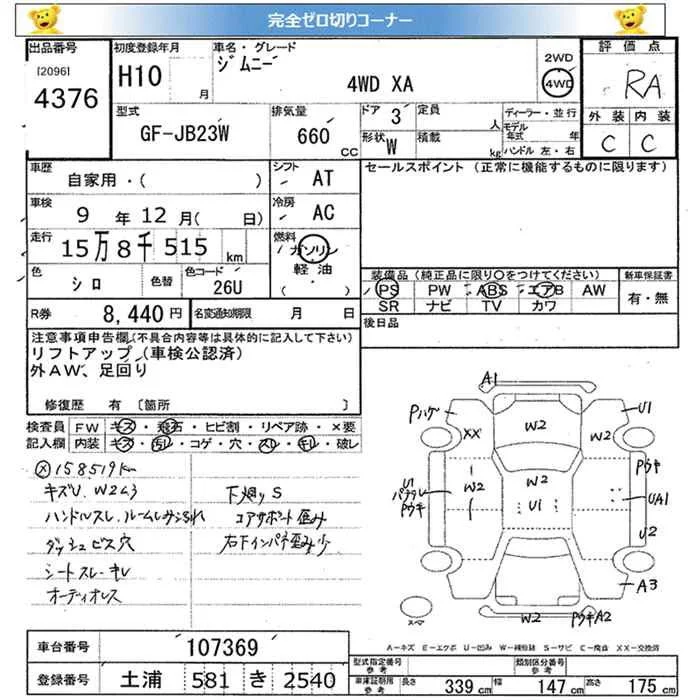 完全ゼロ切りコーナー
出品番号
[2096]
4376
初度登録年月
H10 月
車名・グレード
ジムニー
4WD XA
2WD
4WD
評価点
RA
外装 内装
C C
型式
GF-JB23W
排気量
660 CC
ドア 3
形状 W
定員 人
積載 kg
ディーラー・並行
モデル年式 年
ハンドル 左・右
車歴
自家用・( )
シフト AT
車検
9 年 12 月( 日)
冷房 AC
走行
15万8千515 km
燃料 ガソリン
軽油
( )
色 シロ
色替
色コード 26U
R券 8,440 円
名変通知期限 月 日
セールスポイント (正常に機能するものに限ります)
装備品 (純正品に限り○をつけてください)
新車保証書
PS PW ABS エアB AW
SR ナビ TV カワ
有・無
後日品
注意事項申告欄(不具合内容等は具体的に記入して下さい)
リフトアップ(車検公認済)
外AW、足回り
修復歴 有 〔箇所 〕
検査員記入欄
FW キズ・飛石・ヒビ割・リペア跡・×要
内装 キズ・汚レ・コゲ・穴・スレ・キレ・破レ
158519km
キズU、W2ム3
ハンドルスレ、ルームミラー汚れ
ダッシュビス穴
シートスレ・キレ
オーディオレス
下廻りS
コアサポート歪み
右下インパネ歪み少
A1
Pハゲ
XX
W2
W2
U1
U1
パテクレ
Pウキ
W2
W2
U1
Pウキ
UA1
U2
A3
W2
PウキA2
スペア
A=キズ E=エクボ U=凹み W=補修跡 S=サビ C=腐食 XX=交換済
車台番号 107369
登録番号 土浦 581 き 2540
型式指定番号 参考
類別区分番号 参考
車庫証明用 参考
長さ 339 cm
幅 147 cm
高さ 175 cm